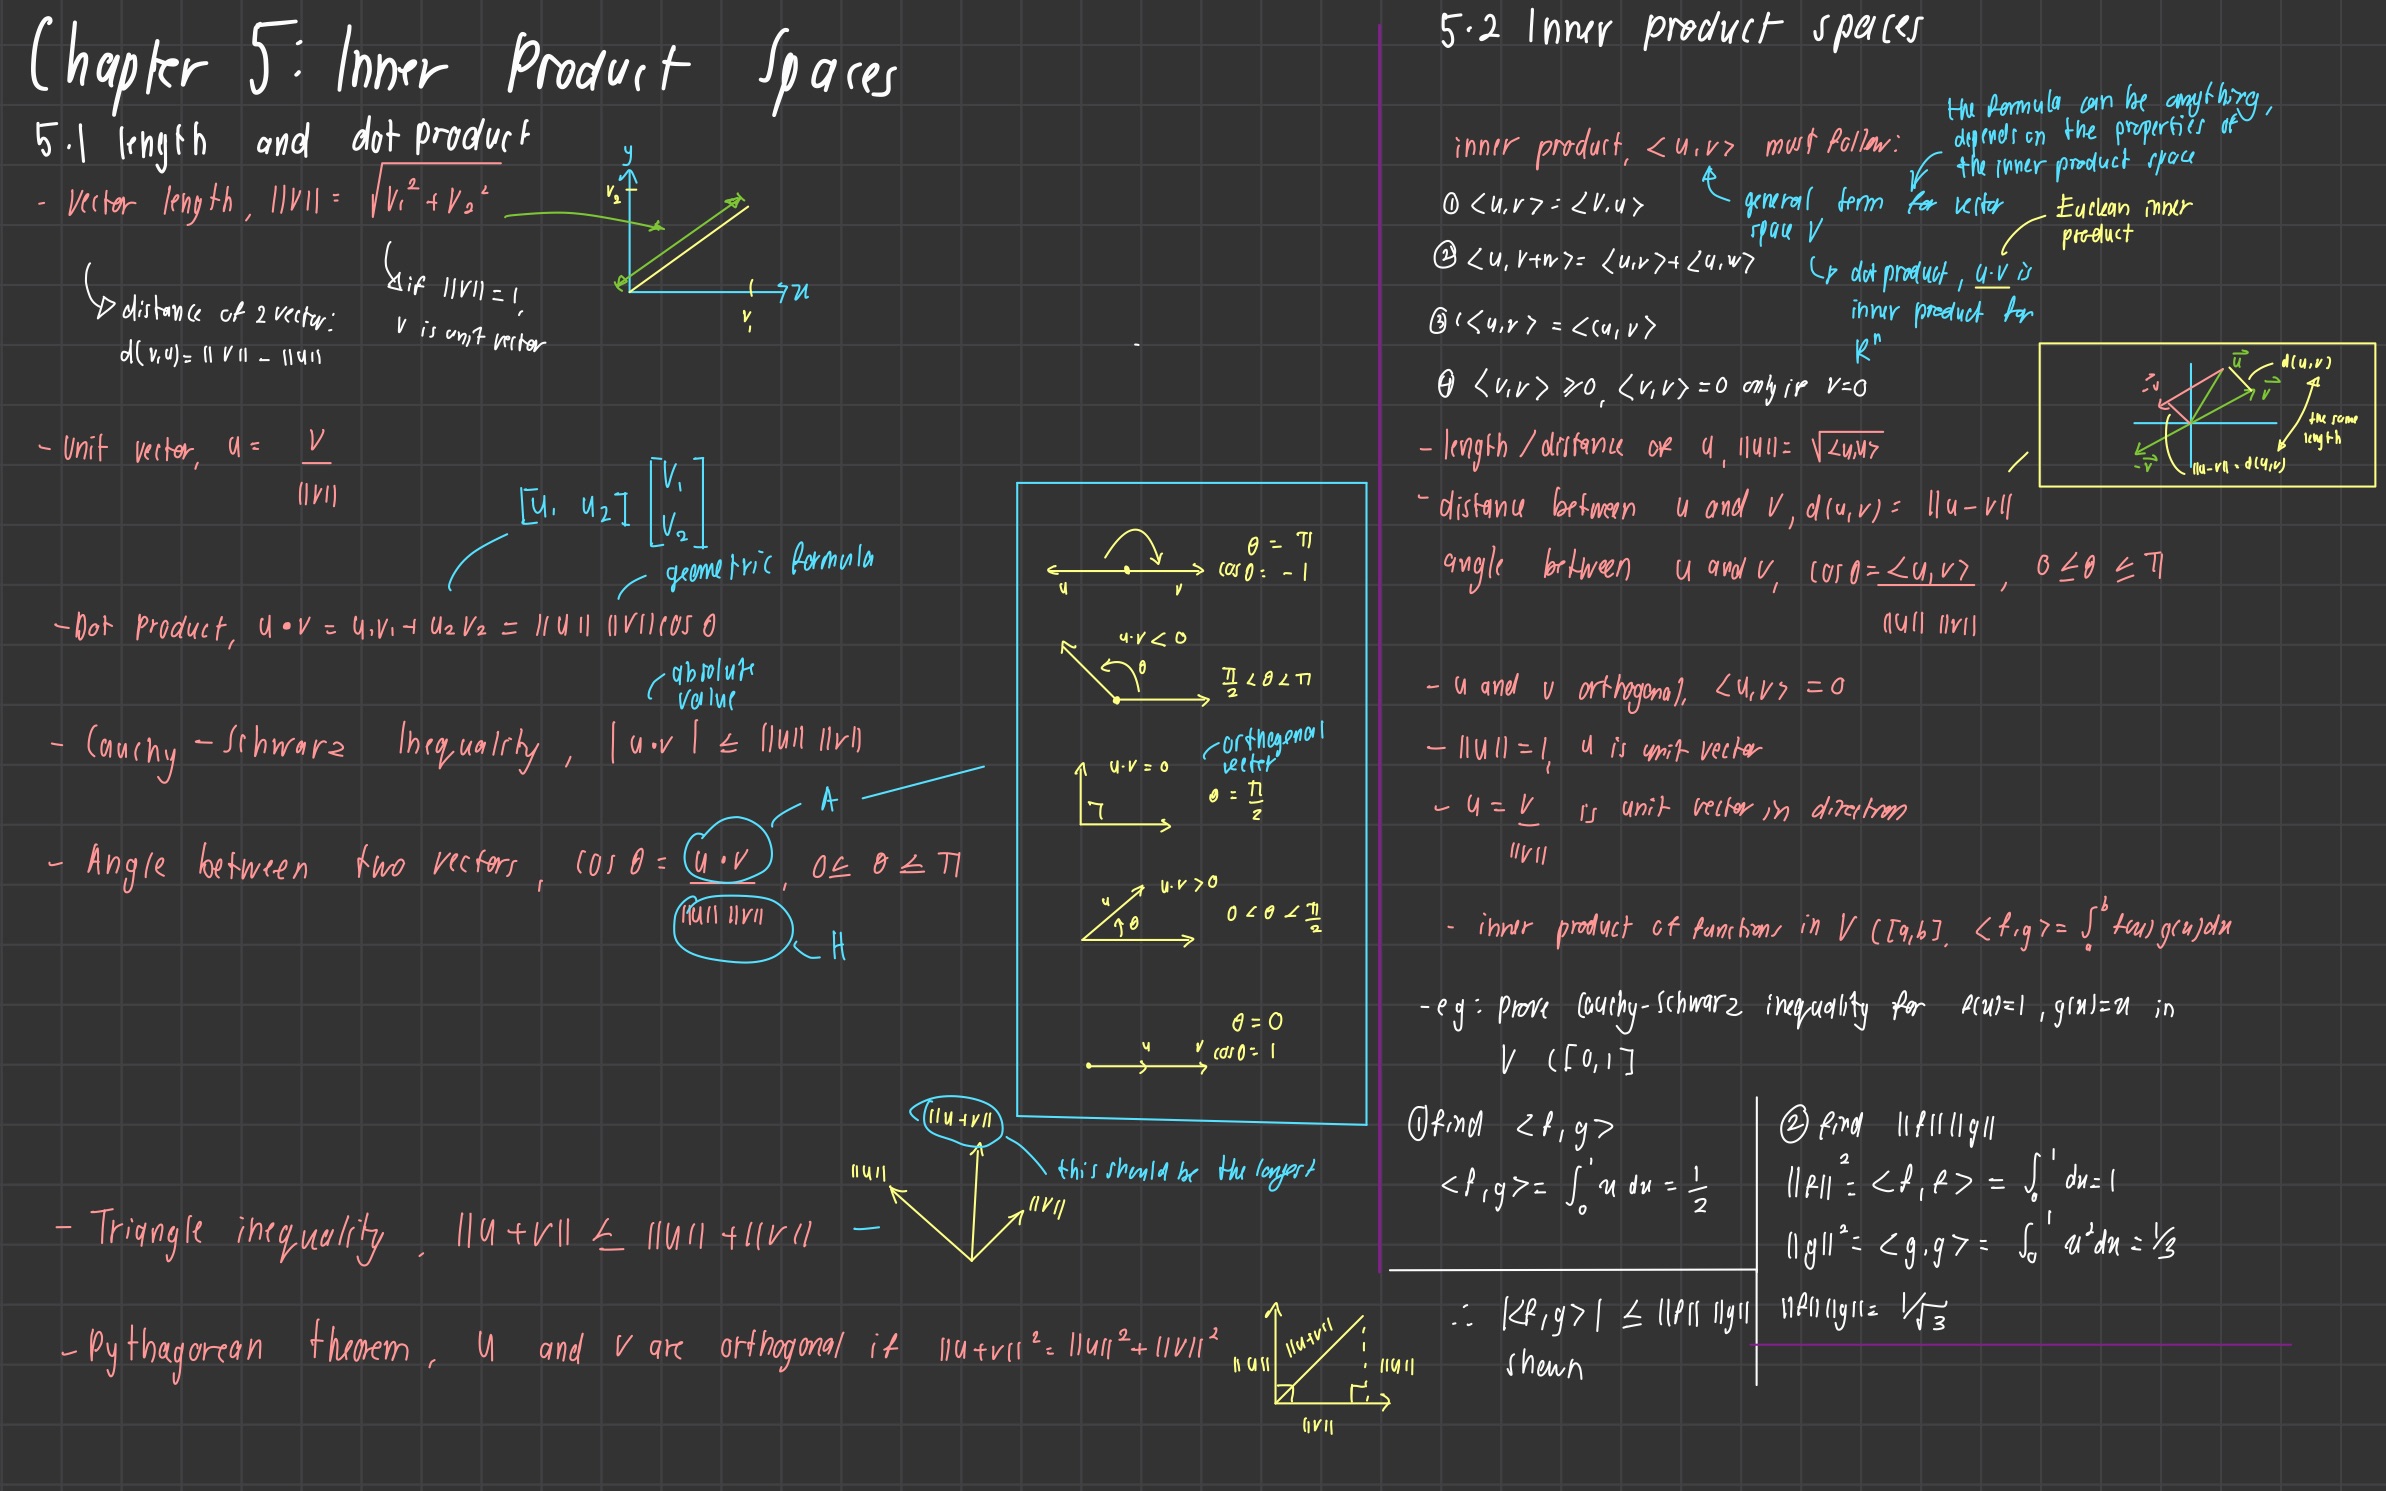 Chapter 5: Inner Product Spaces
5.1 length and dot product
- vector length, ||v|| = √v₁² + v₂²
y
v₂
x
v₁
distance of 2 vector:
d(v,u) = ||v|| - ||u||
if ||v|| = 1,
v is unit vector
- unit vector, u = v / ||v||
[u₁ u₂] [v₁ v₂]
geometric formula
- Dot Product, u • v = u₁v₁ + u₂v₂ = ||u|| ||v|| cos θ
absolute
value
- Cauchy - Schwarz Inequality, |u•v| ≤ ||u|| ||v||
A
- Angle between two vectors, cos θ = u • v / ||u|| ||v||, 0 ≤ θ ≤ π
H
u v
θ = π
cos θ = -1
u·v < 0
θ
π/2 < θ < π
u·v = 0
orthogonal
vector
θ = π/2
u·v > 0
u
θ
0 < θ < π/2
θ = 0
u v cos θ = 1
||u+v||
||u||
||v||
this should be the longest
- Triangle inequality, ||u+v|| ≤ ||u|| + ||v||
- Pythagorean theorem, u and v are orthogonal if ||u+v||² = ||u||² + ||v||²
||u||
||u+v||
||u||
||v||
5.2 Inner product spaces
the formula can be anything,
depends on the properties of
the inner product space
inner product, <u,v> must follow:
general term for vector
space V
Euclean inner
product
① <u,v> = <v,u>
② <u, v+w> = <u,v> + <u,w>
dot product, u·v is
inner product for
Rⁿ
③ c<u,v> = <cu,v>
④ <v,v> ≥ 0, <v,v> = 0 only if v=0
u
d(u,v)
v
-v
-v
the same
length
||u-v|| = d(u,v)
- length / distance of u, ||u|| = √<u,u>
- distance between u and v, d(u,v) = ||u-v||
angle between u and v, cos θ = <u,v> / ||u|| ||v||, 0 ≤ θ ≤ π
- u and v orthogonal, <u,v> = 0
- ||u|| = 1, u is unit vector
- u = v / ||v|| is unit vector in direction
- inner product of functions in V C[a,b], <f,g> = ∫ₐᵇ f(x)g(x)dx
- eg: prove Cauchy-Schwarz inequality for f(x)=1, g(x)=x in
V C[0,1]
① find <f,g>
<f,g> = ∫₀¹ x dx = 1/2
② find ||f|| ||g||
||f||² = <f,f> = ∫₀¹ dx = 1
||g||² = <g,g> = ∫₀¹ x² dx = 1/3
||f|| ||g|| = 1/√3
∴ |<f,g>| ≤ ||f|| ||g||
shown